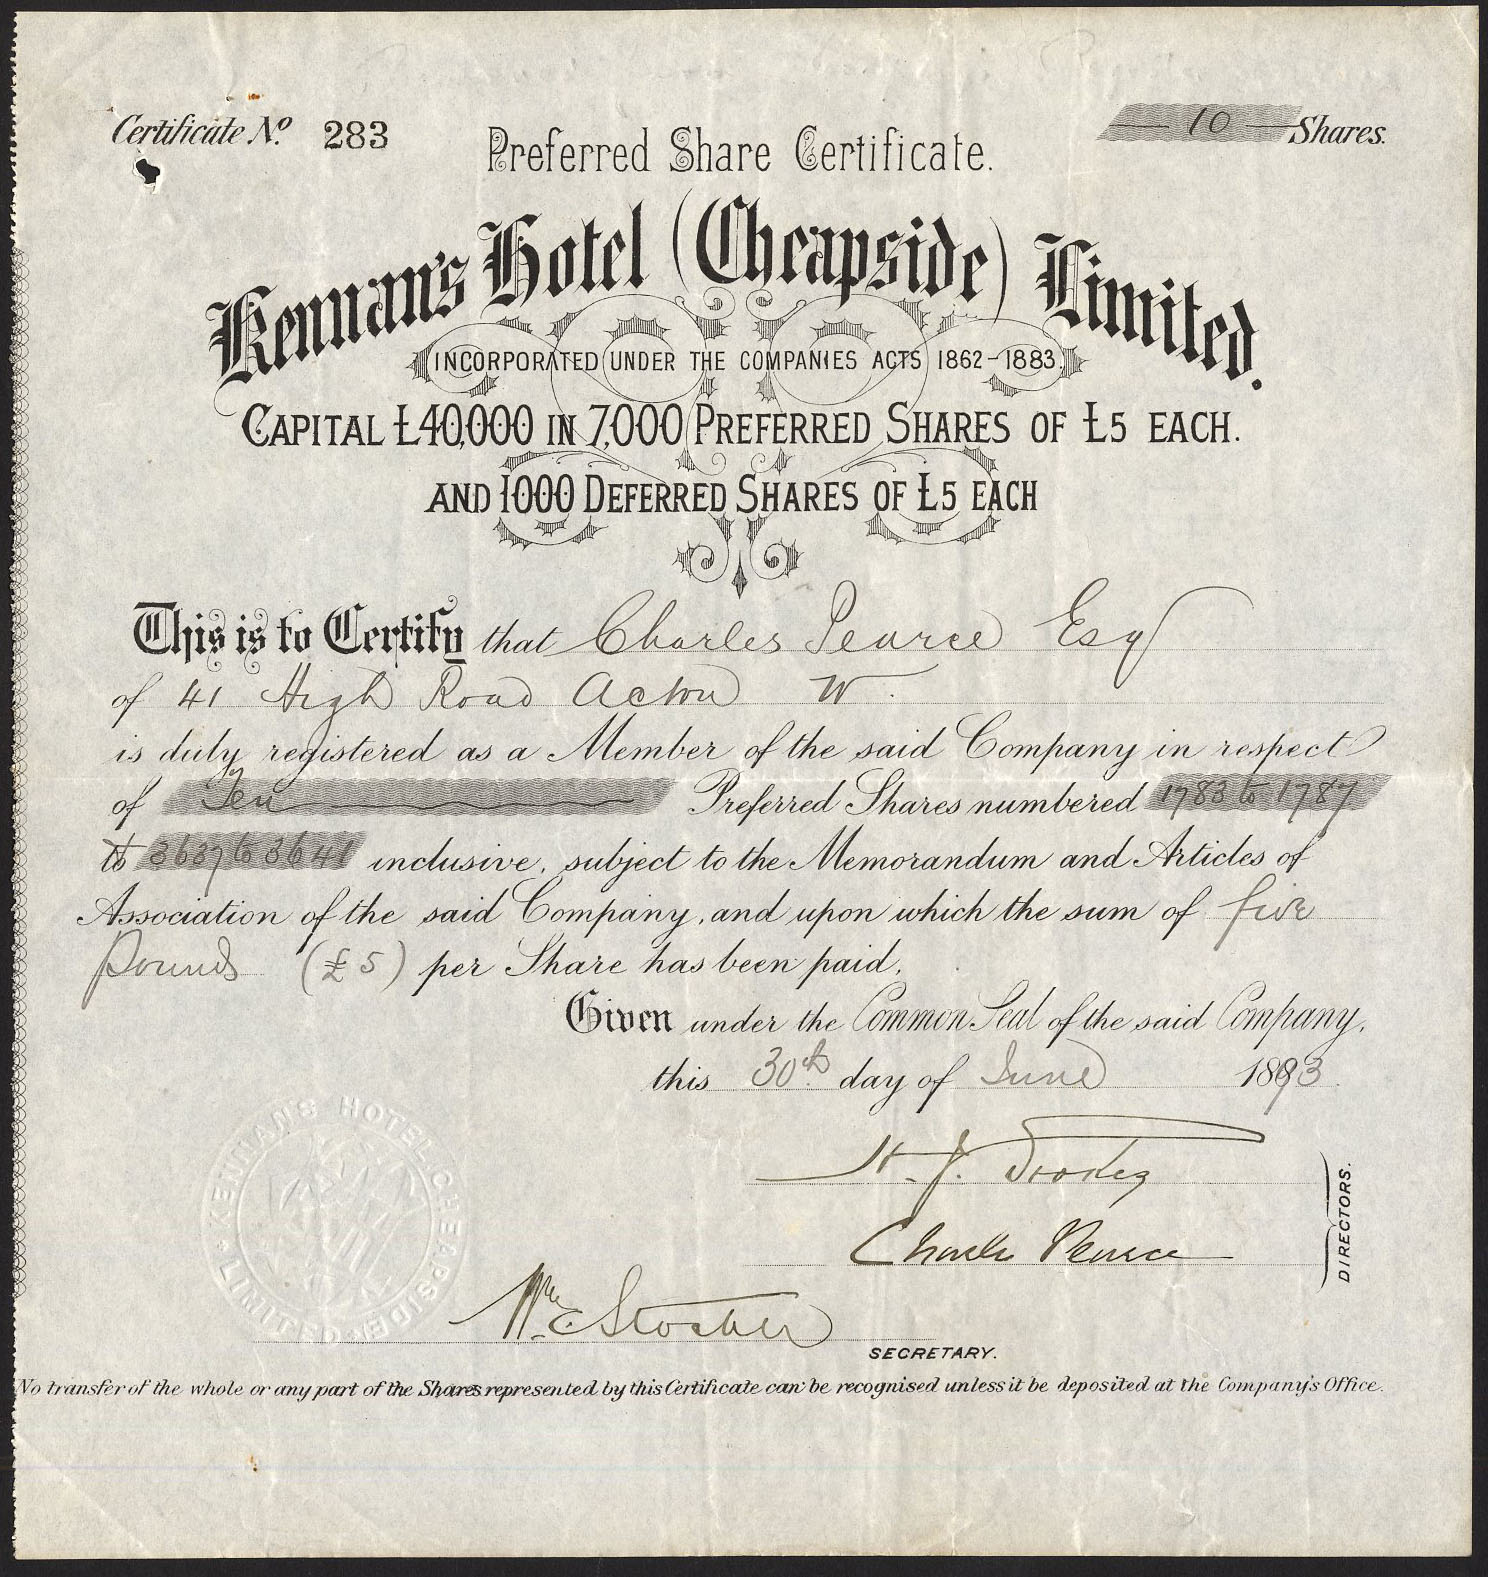 Certificate No. 283
10 Shares.
Preferred Share Certificate.
Kennan's Hotel (Cheapside) Limited.
INCORPORATED UNDER THE COMPANIES ACTS 1862-1883.
CAPITAL £40,000 IN 7,000 PREFERRED SHARES OF £5 EACH.
AND 1000 DEFERRED SHARES OF £5 EACH
This is to Certify that Charles Pearce Esq
of 41 High Road Acton W.
is duly registered as a Member of the said Company in respect
of Ten Preferred Shares numbered 1783 to 1787
to 3637 to 3641 inclusive, subject to the Memorandum and Articles of
Association of the said Company, and upon which the sum of five
pounds (£5) per Share has been paid.
Given under the Common Seal of the said Company,
this 30th day of June 1893
H. J.
Charles Pearce
DIRECTORS.
KENNAN'S HOTEL CHEAPSIDE LIMITED
Wm
SECRETARY.
No transfer of the whole or any part of the Shares represented by this Certificate can be recognised unless it be deposited at the Company's Office.